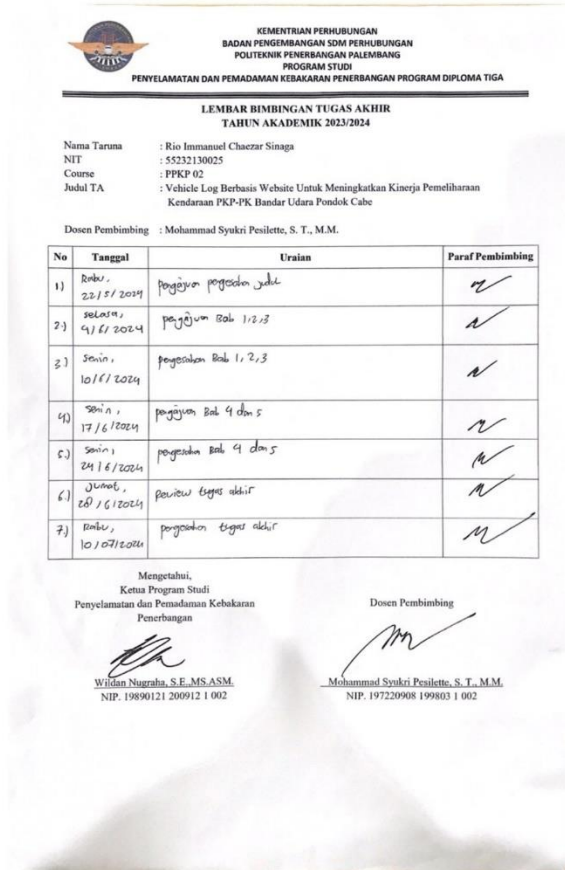 KEMENTRIAN PERHUBUNGAN
BADAN PENGEMBANGAN SDM PERHUBUNGAN
POLITEKNIK PENERBANGAN PALEMBANG
PROGRAM STUDI
PENYELAMATAN DAN PEMADAMAN KEBAKARAN PENERBANGAN PROGRAM DIPLOMA TIGA
LEMBAR BIMBINGAN TUGAS AKHIR
TAHUN AKADEMIK 2023/2024
Nama Taruna : Rio Immanuel Chaezar Sinaga
NIT : 55232130025
Course : PPKP 02
Judul TA : Vehicle Log Berbasis Website Untuk Meningkatkan Kinerja Pemeliharaan
Kendaraan PKP-PK Bandar Udara Pondok Cabe
Dosen Pembimbing : Mohammad Syukri Pesilette, S. T., M.M.
No Tanggal Uraian Paraf Pembimbing
1) Rabu, 22/5/2024 pengajuan pengesahan judul
2.) selasa, 4/6/2024 pengajuan Bab 1,2,3
3) Senin, 10/6/2024 pengesahan Bab 1, 2, 3
4) Senin, 17/6/2024 pengajuan Bab 4 dan 5
5.) Senin, 24/6/2024 pengesahan Bab 4 dan 5
6.) Jumat, 28/6/2024 Review tugas akhir
7.) Rabu, 10/07/2024 pengesahan tugas akhir
Mengetahui,
Ketua Program Studi
Penyelamatan dan Pemadaman Kebakaran
Penerbangan
Wildan Nugraha, S.E.,MS.ASM.
NIP. 19890121 200912 1 002
Dosen Pembimbing
Mohammad Syukri Pesilette, S. T., M.M.
NIP. 197220908 199803 1 002